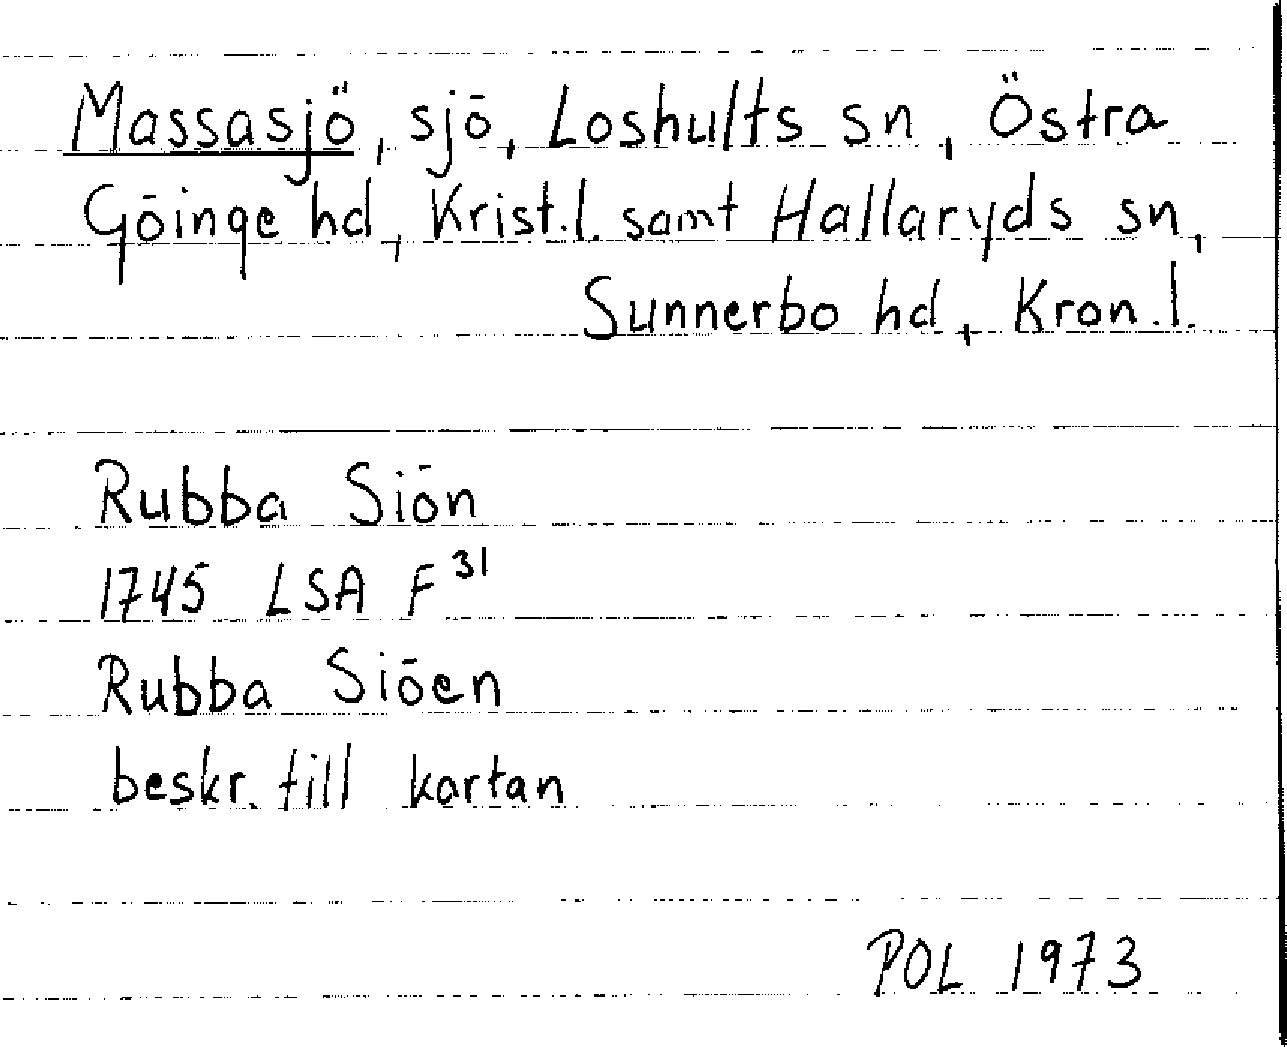 Massasjö, sjö, Loshults sn, Östra
Göinge hd, Krist.l. samt Hallaryds sn,
Sunnerbo hd, Kron.l.
Rubba Siön
1745 LSA F 31
Rubba Siöen
beskr. till kartan
POL 1973